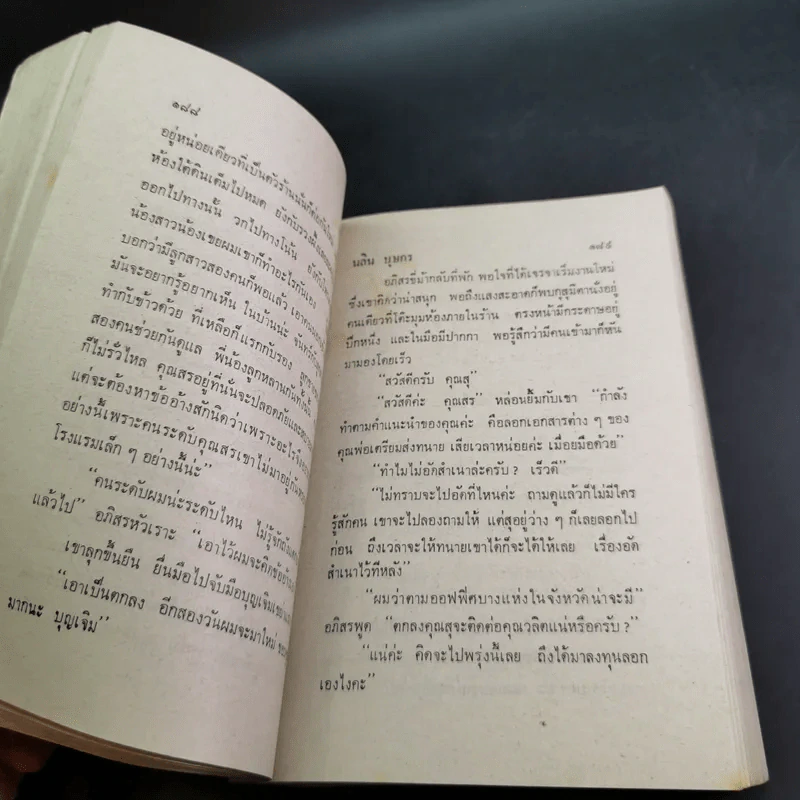 ๑๘๘
อยู่หน่อยเดียวที่เป็นตัวร้านนั่นก็ต่อ
ห้องใต้ดินเต็มไปหมด ยังกับรวงผึ้ง
ออกไปทางนั้น วกไปทางโน้น
น้องสาวน้องเขยผมเขาก็ทำอะไรกันเอง
บอกว่ามีลูกสาวสองคนก็พอแล้ว
มันจะอยากรู้อยากเห็น ในบ้านน่ะ
ทำกับข้าวด้วย ที่เหลือก็แรกกับรอง
สองคนช่วยกันดูแล พี่น้องลูกหลานกันทั้งนั้น
ก็ไม่รั่วไหล คุณสรอยู่ที่นั่นจะปลอดภัยและ
แต่จะต้องหาข้ออ้างสักนิดว่าเพราะอะไรจึง
อย่างนี้เพราะคนระดับคุณสรเขาไม่มาอยู่กัน
โรงแรมเล็ก ๆ อย่างนี้น่ะ”
“คนระดับผมน่ะระดับไหน ไม่รู้จัก
แล้วไป” อภิสรหัวเราะ “เอาไว้ผมจะคิดข้อ
เขาลุกขึ้นยืน ยื่นมือไปจับมือบุญเจิม
“เอาเป็นตกลง อีกสองวันผมจะมาใหม่
มากนะ บุญเจิม”
นลิน บุษกร ๑๘๙
อภิสรขี่ม้ากลับที่พัก พอใจที่ได้เจรจาเริ่มงานใหม่
ซึ่งเขาคิดว่าน่าสนุก พอถึงแสงสะอาดก็พบกุสุมิตานั่งอยู่
คนเดียวที่โต๊ะมุมห้องภายในร้าน ตรงหน้ามีกระดาษอยู่
ปึกหนึ่ง และในมือมีปากกา พอรู้สึกว่ามีคนเข้ามาก็หัน
มามองโดยเร็ว
“สวัสดีครับ คุณสุ”
“สวัสดีค่ะ คุณสร” หล่อนยิ้มกับเขา “กำลัง
ทำตามคำแนะนำของคุณค่ะ คือลอกเอกสารต่าง ๆ ของ
คุณพ่อเตรียมส่งทนาย เสียเวลาหน่อยค่ะ เมื่อยมือด้วย”
“ทำไมไม่อัดสำเนาล่ะครับ? เร็วดี”
“ไม่ทราบจะไปอัดที่ไหนค่ะ ถามดูแล้วก็ไม่มีใคร
รู้สักคน เขาจะไปลองถามให้ แต่สุอยู่ว่าง ๆ ก็เลยลอกไป
ก่อน ถึงเวลาจะให้ทนายเขาได้ก็จะได้ให้เลย เรื่องอัด
สำเนาไว้ทีหลัง”
“ผมว่าตามออฟฟิศบางแห่งในจังหวัดน่าจะมี”
อภิสรพูด “ตกลงคุณสุจะติดต่อคุณวลิตแน่หรือครับ?”
“แน่ค่ะ คิดจะไปพรุ่งนี้เลย ถึงได้มาลงทุนลอก
เองไงคะ”